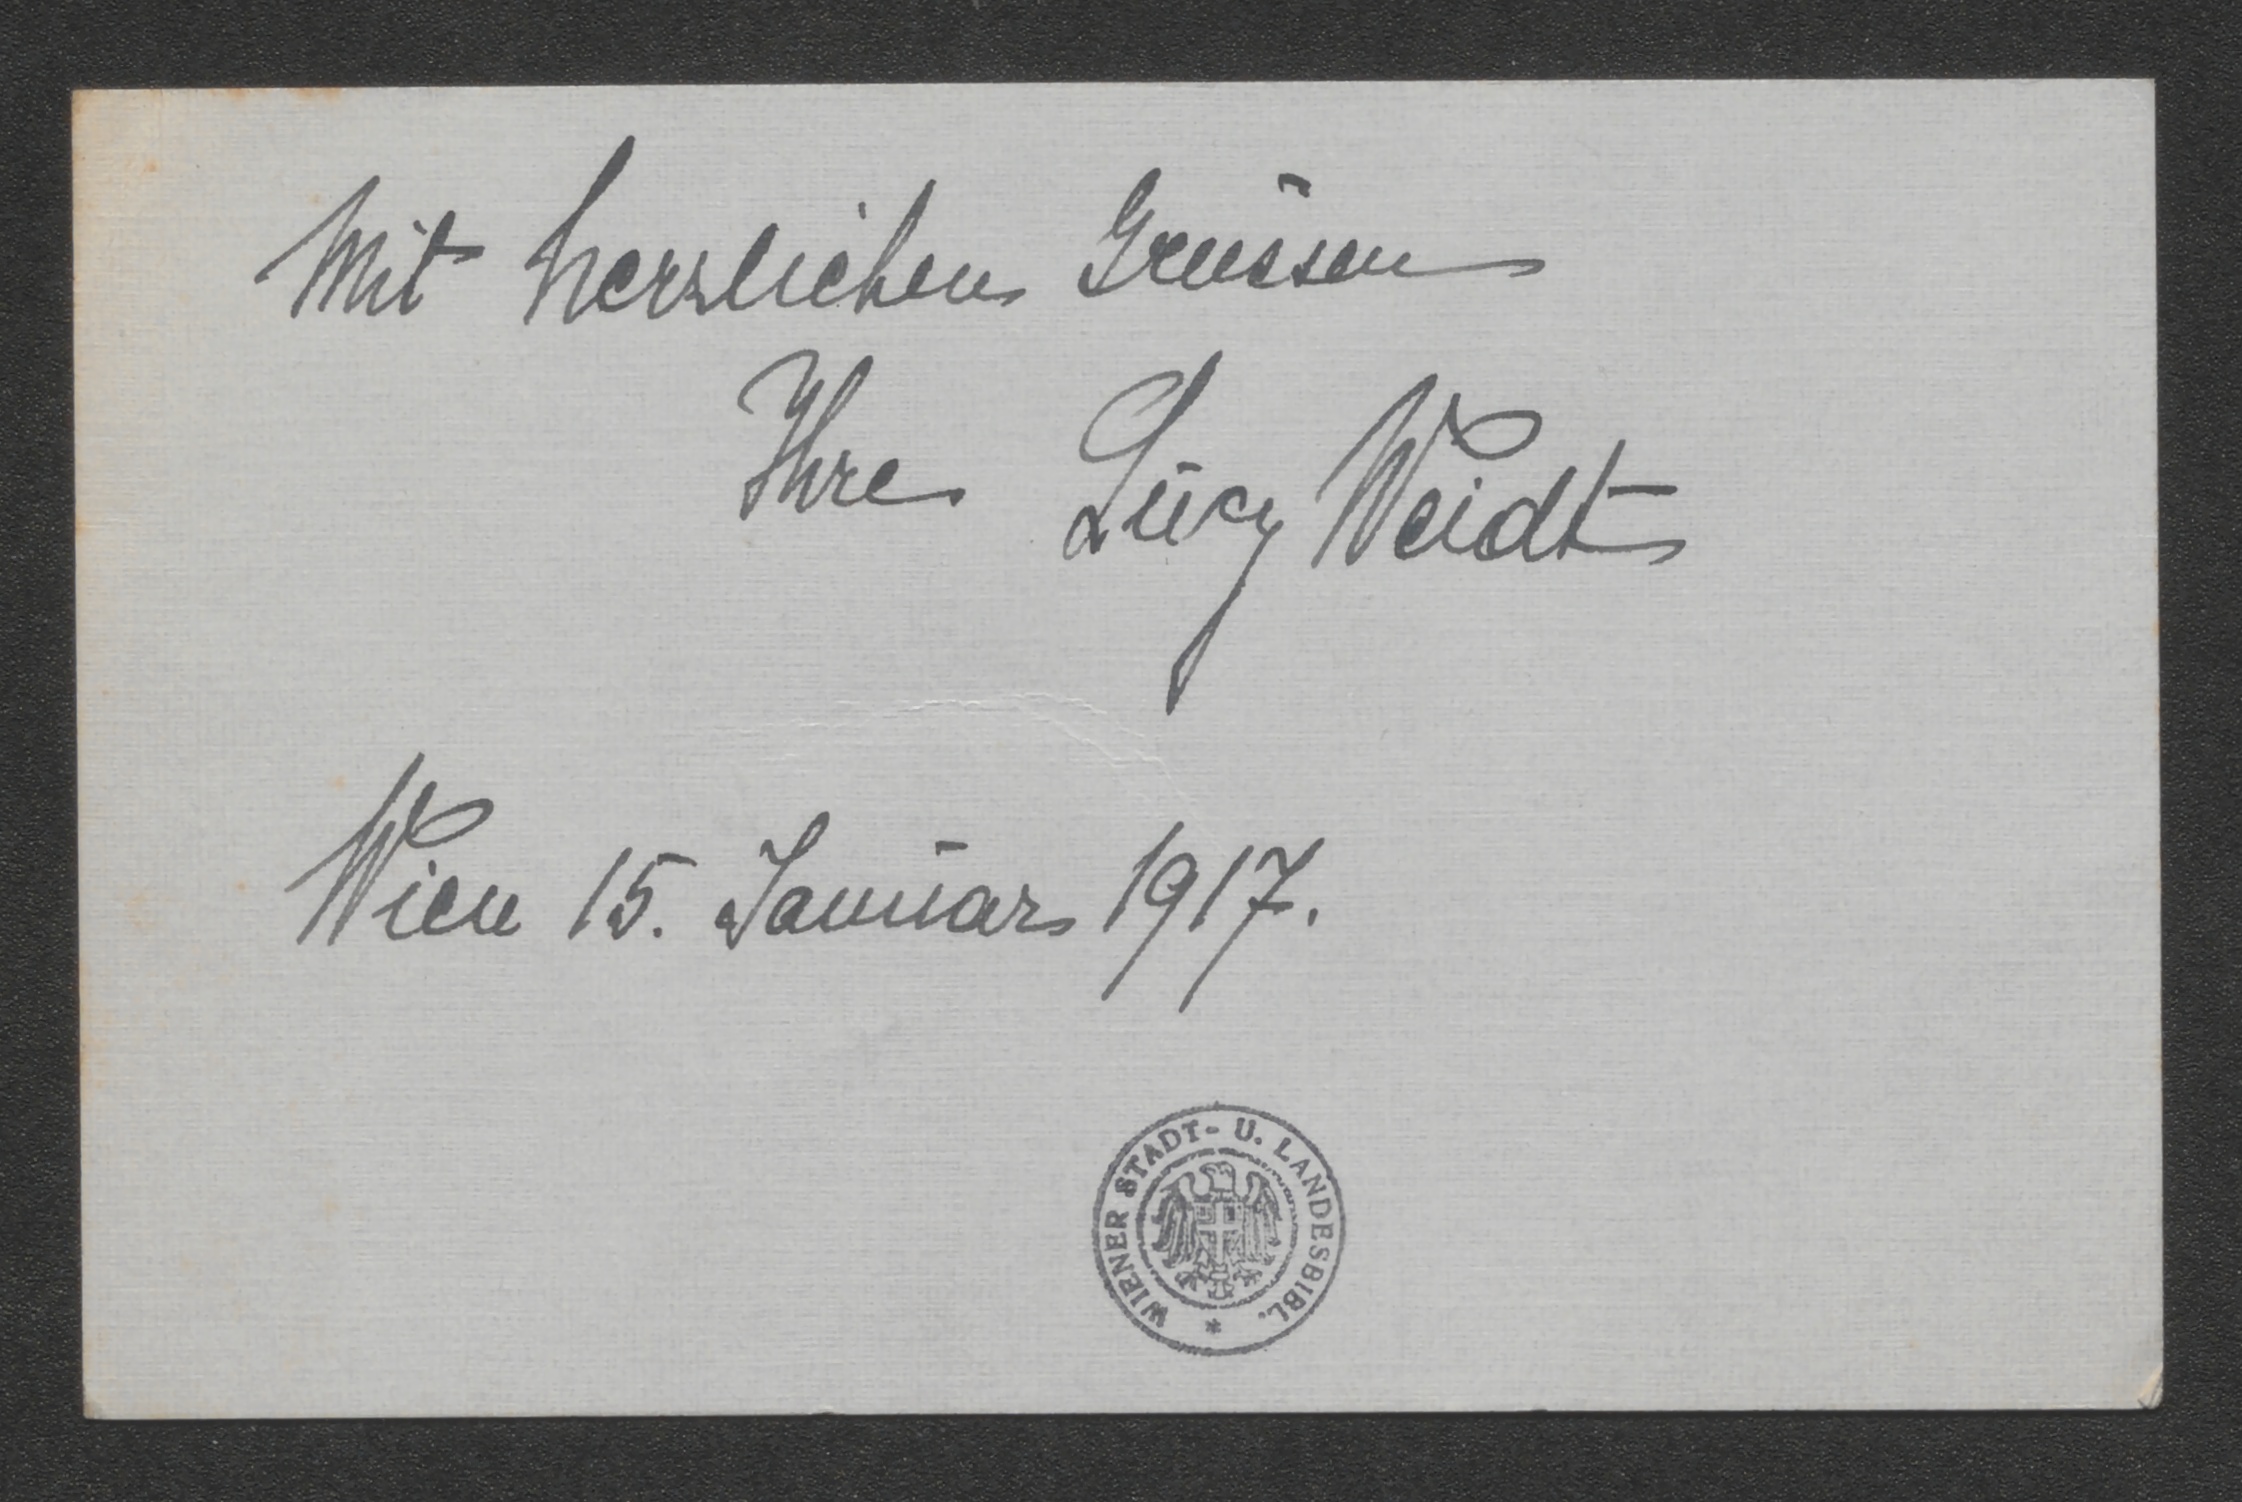 Mit herzlichen Grüssen
Ihre Lucy Weidt
Wien 15. Januar 1917.
WIENER STADT- U. LANDESBIBL. *